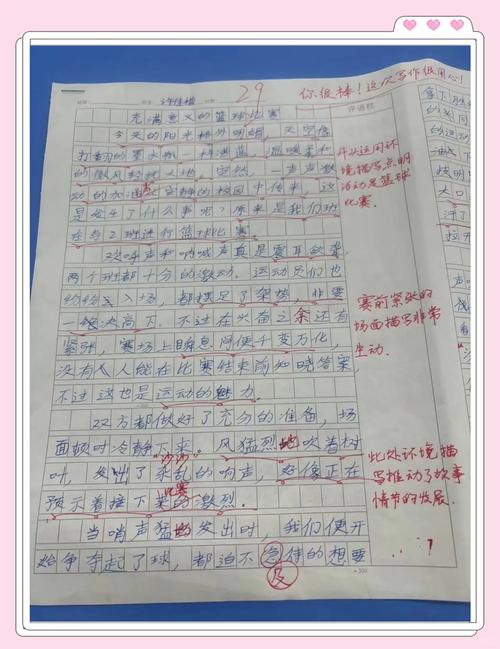 29
你很棒！这次写作很用心！
评语栏
充满意义的篮球比赛
今天的阳光格外明媚，天空像
打翻的墨水瓶一样湛蓝，温暖柔和
的微风轻拂大地。突然，一声声激
动的加油声从安静的校园中传来，这
是发生了什么事呢？原来是我们班
在与2班进行篮球比赛。
欢呼声和呐喊声真是震耳欲聋，
两个班都十分的激动。运动员们也
纷纷进入场，都摆足了架势，非要
一绝决高下。不过在兴奋之余还有
紧张，赛场上瞬息间便千变万化，
没有人能在比赛结束前知晓答案，
不过这也是运动的魅力。
双方都做好了充分的准备，场
面顿时冷静下来。风猛烈地吹着树
叶，发出了沙沙杂乱的响声，好像正在
预示着接下来比赛的激烈。
当哨声猛地发出时，我们便开
始争夺起了球，都迫不急待的想要
及
开头运用环
境描写点明
活动是篮球
比赛.
赛前紧张的
场面描写非常
生动.
此处环境描
写推动了故事
情节的发展.